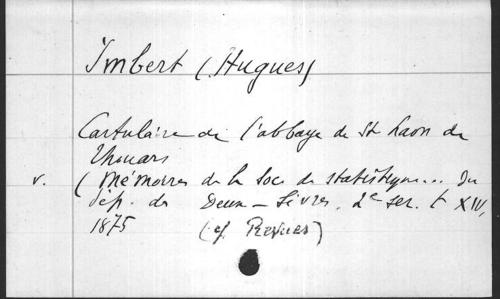 Imbert (Hugues)
Cartulaire de l'abbaye de St Laon de
Thouars
v. (Mémoires de la Soc. de statistique... du
dép. des Deux-Sèvres. 2e ser. t XIV,
1875 (cf Revues)